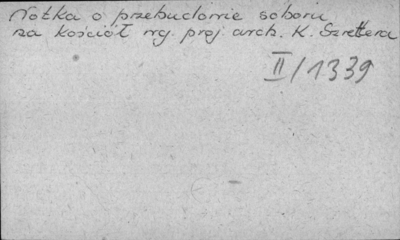 Notka o przebudowie soboru
za kościół wg. proj. arch. K. Szrettera
II/1339